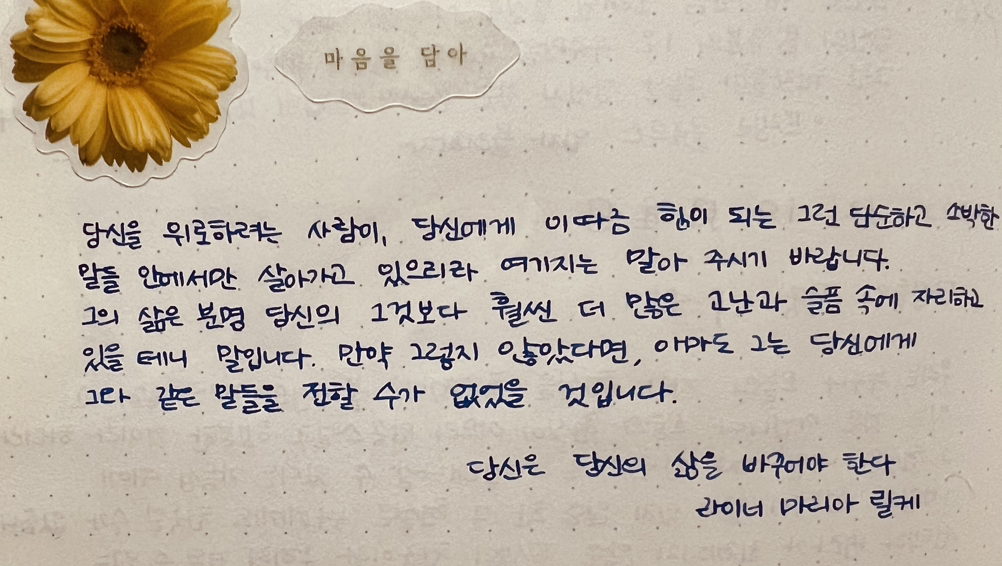 마음을 담아
당신을 위로하려는 사람이, 당신에게 이따금 힘이 되는 그런 단순하고 소박한
말들 안에서만 살아가고 있으리라 여기지는 말아 주시기 바랍니다.
그의 삶은 분명 당신의 그것보다 훨씬 더 많은 고난과 슬픔 속에 자리하고
있을 테니 말입니다. 만약 그렇지 않았다면, 아마도 그는 당신에게
그와 같은 말들을 전할 수가 없었을 것입니다.
당신은 당신의 삶을 바꾸어야 한다
라이너 마리아 릴케